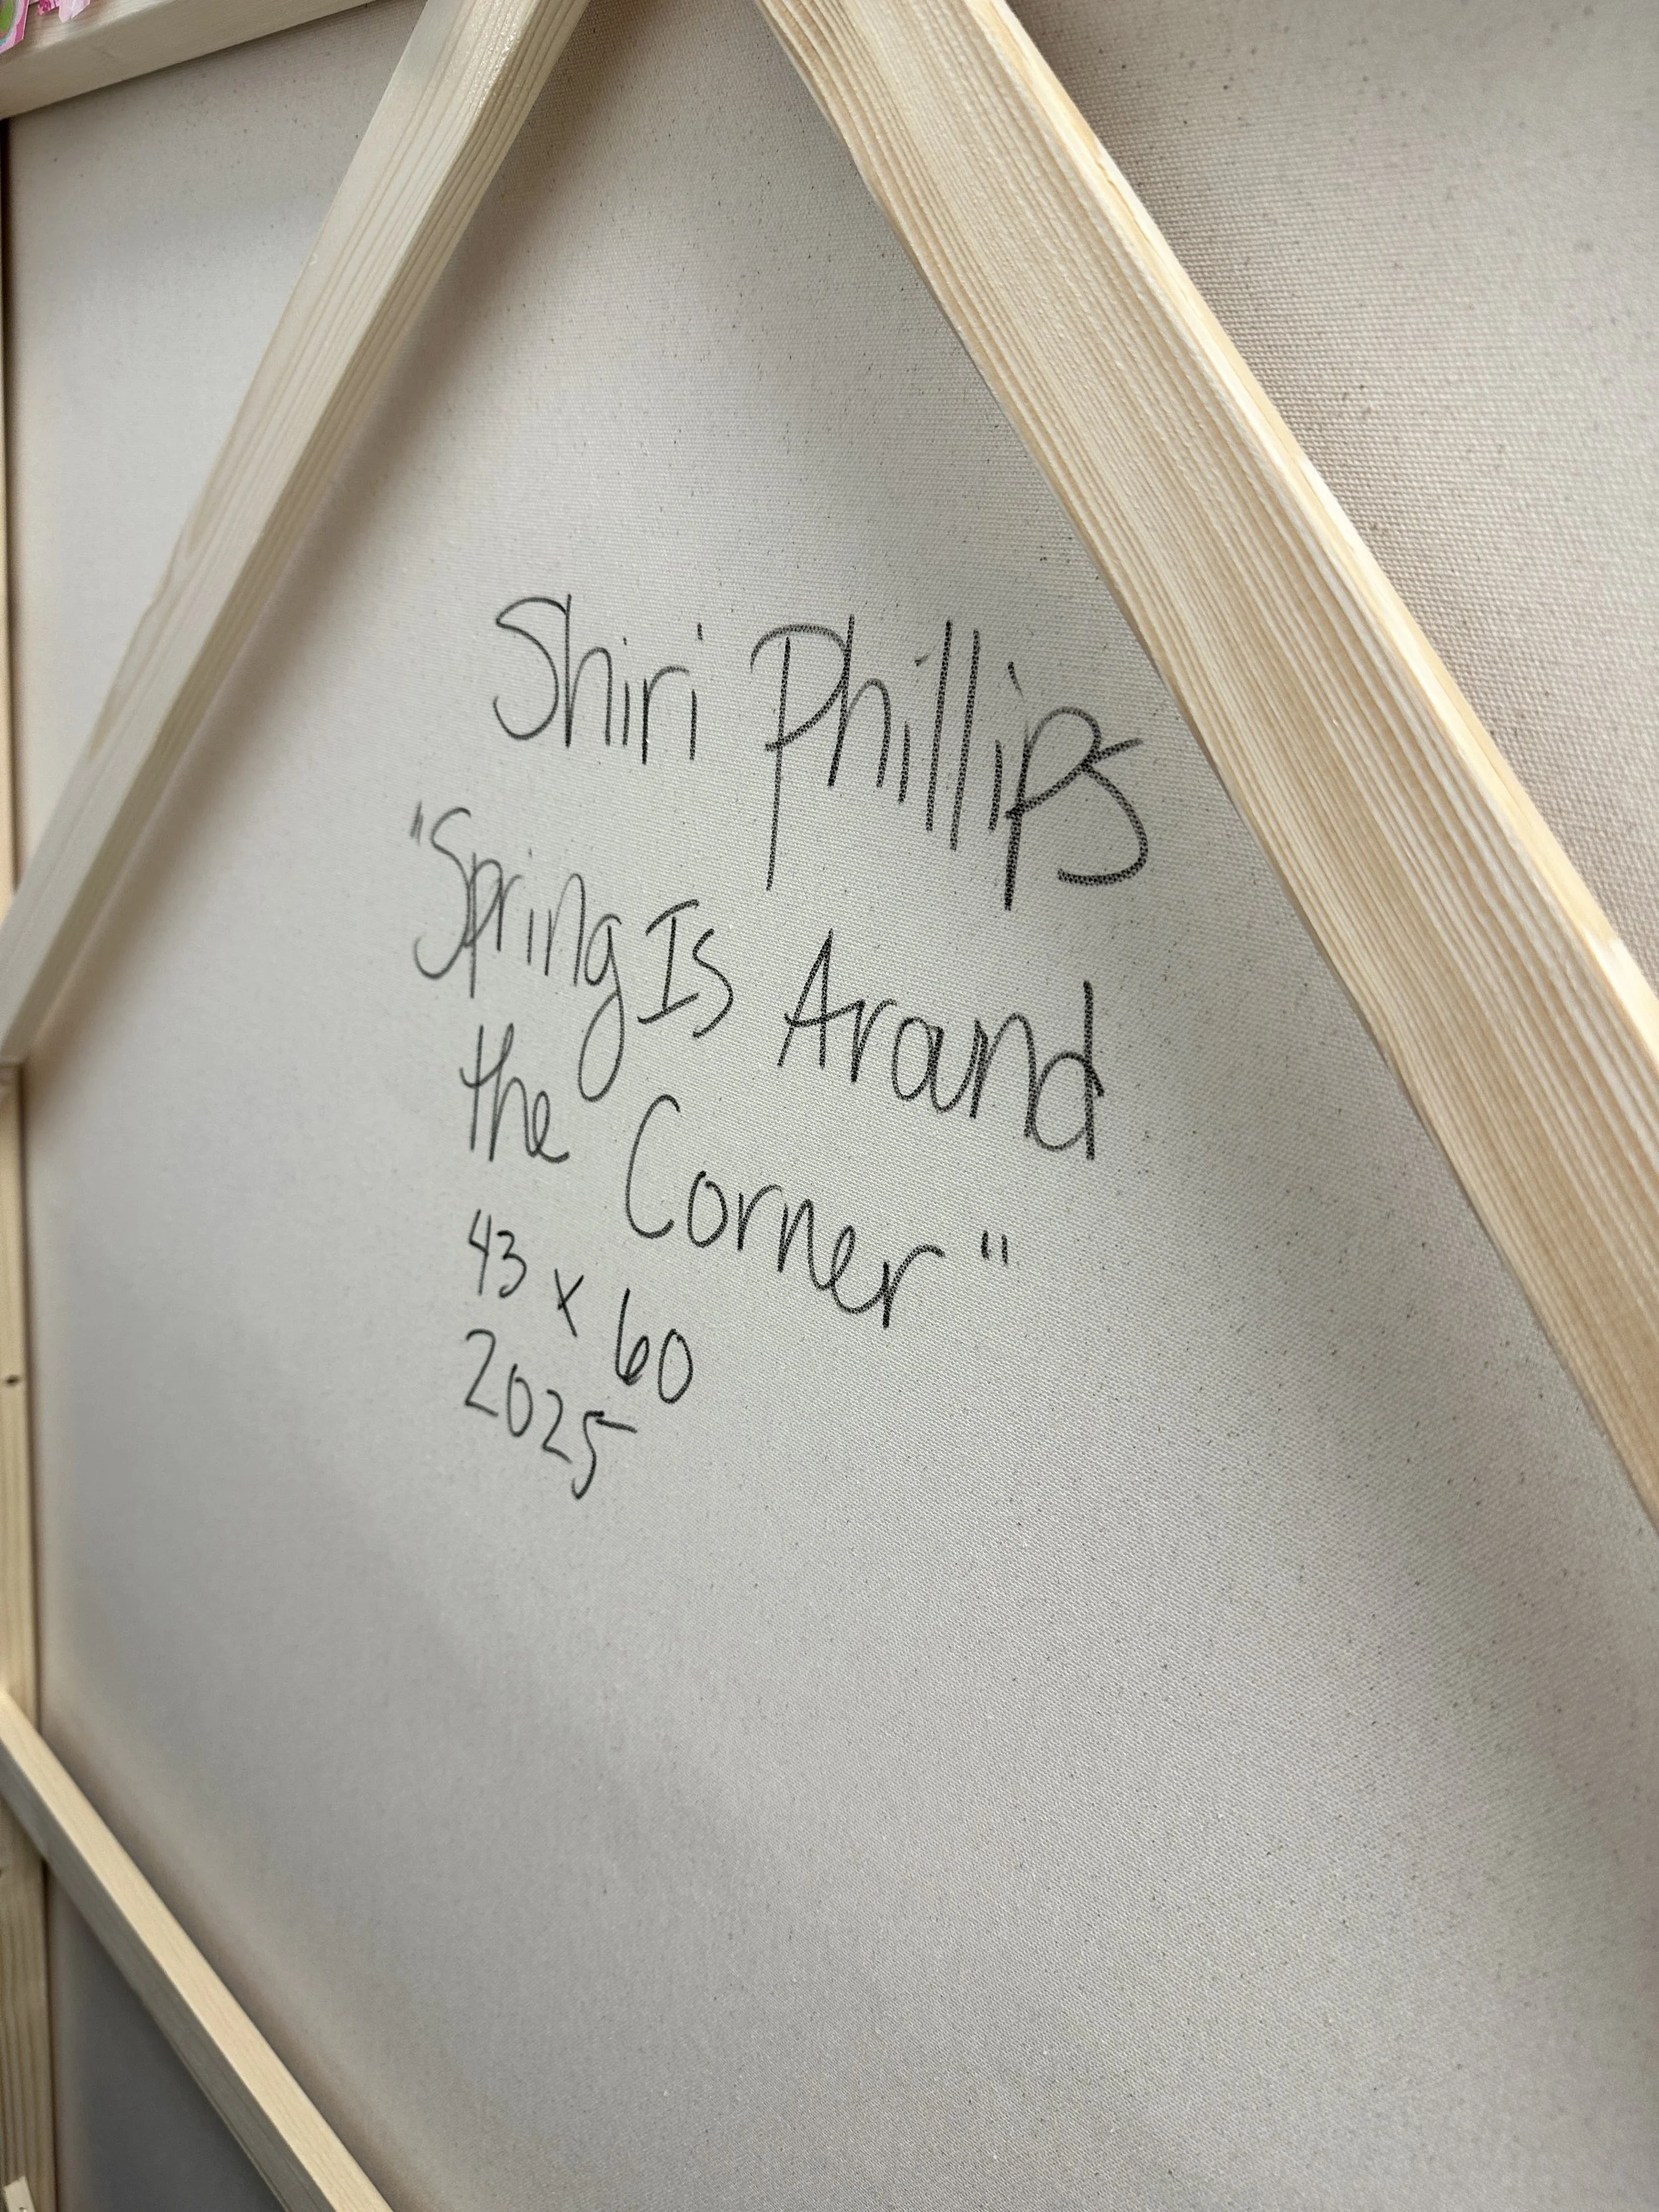 Shiri Phillips
"Spring Is Around
the Corner"
43 x 60
2025